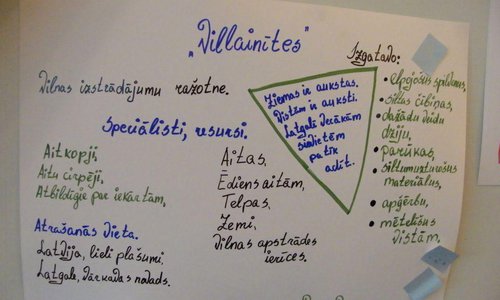 „Villainītes”
Vilnas izstrādājumu ražotne.
Speciālisti, resursi.
Aitkopji,
Aitu cirpēji,
Atbildīgie par iekārtām,
Atrašanās vieta.
Latvija, lieli plašumi,
Latgale, Vārkavas novads.
Aitas,
Ēdiens aitām,
Telpas,
Zemi,
Vilnas apstrādes
ierīces.
Ziemas ir aukstas.
Vistām ir auksti.
Latgalē vecākām
sievietēm
patīk
adīt.
Izgatavo:
• elpojošus spilvenus,
• siltus čībiņas,
• dažādu veidu
dziju,
• parūkas,
• siltumnoturošus
materiālus,
• apģērbu,
• mētelīšus
vistām.